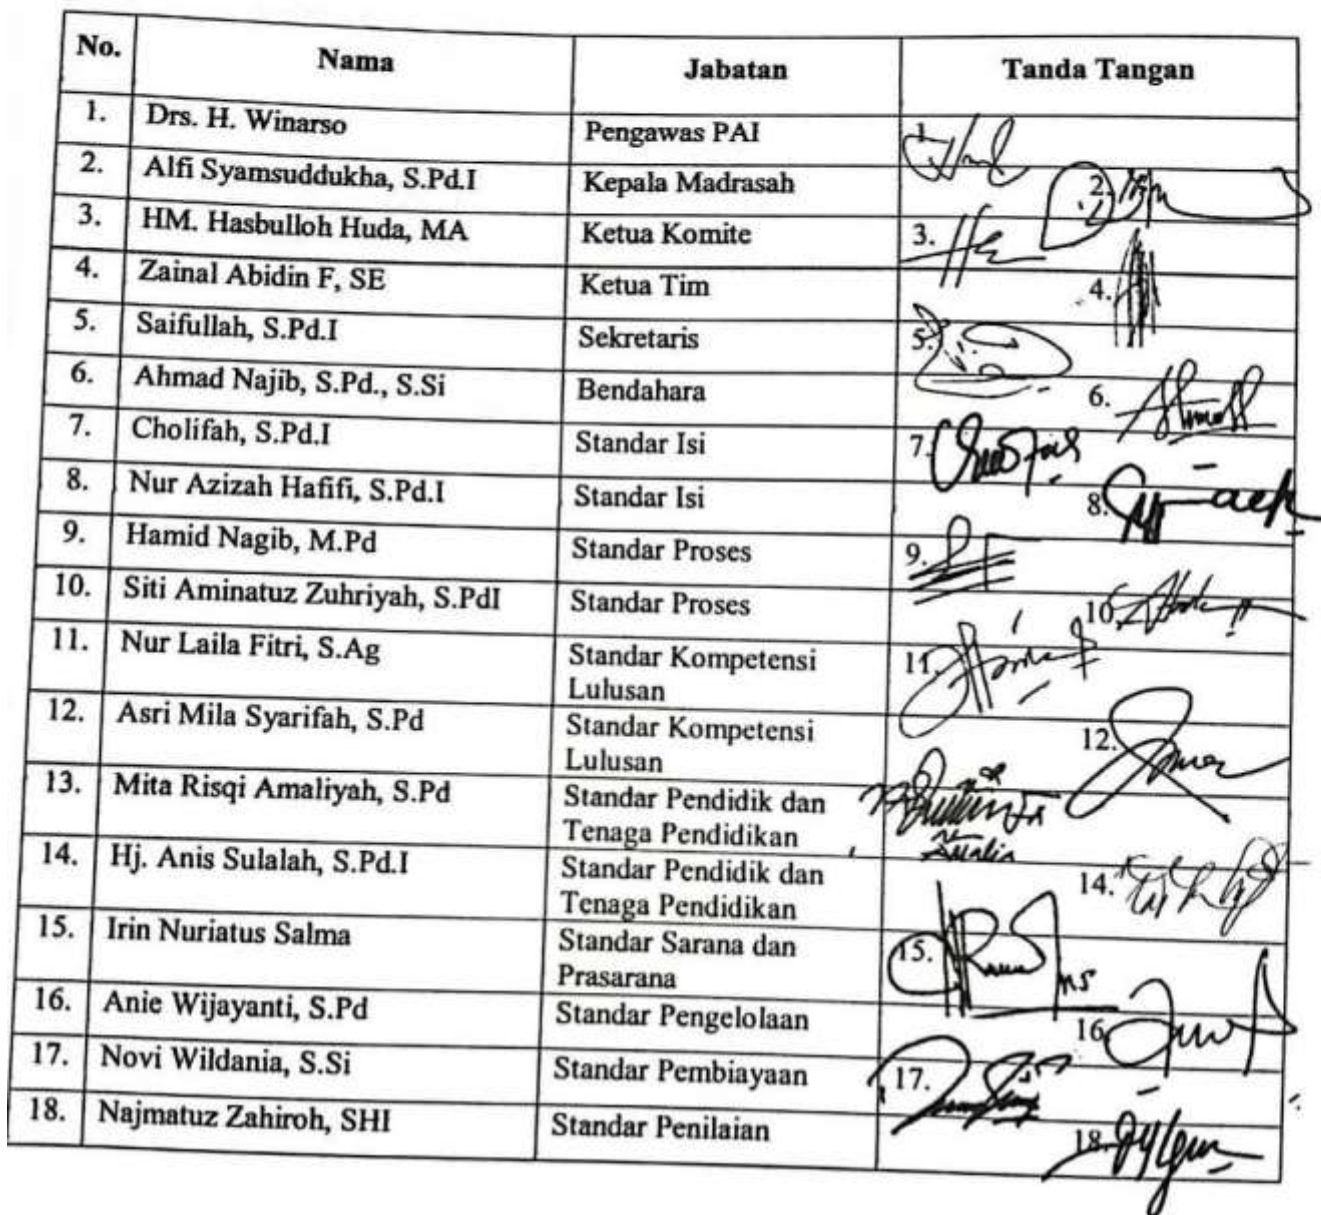 No. Nama Jabatan Tanda Tangan
1. Drs. H. Winarso Pengawas PAI 1.
2. Alfi Syamsuddukha, S.Pd.I Kepala Madrasah 2.
3. HM. Hasbulloh Huda, MA Ketua Komite 3.
4. Zainal Abidin F, SE Ketua Tim 4.
5. Saifullah, S.Pd.I Sekretaris 5.
6. Ahmad Najib, S.Pd., S.Si Bendahara 6.
7. Cholifah, S.Pd.I Standar Isi 7.
8. Nur Azizah Hafifi, S.Pd.I Standar Isi 8.
9. Hamid Nagib, M.Pd Standar Proses 9.
10. Siti Aminatuz Zuhriyah, S.PdI Standar Proses 10.
11. Nur Laila Fitri, S.Ag Standar Kompetensi 11.
Lulusan
12. Asri Mila Syarifah, S.Pd Standar Kompetensi 12.
Lulusan
13. Mita Risqi Amaliyah, S.Pd Standar Pendidik dan
Tenaga Pendidikan
14. Hj. Anis Sulalah, S.Pd.I Standar Pendidik dan 14.
Tenaga Pendidikan
15. Irin Nuriatus Salma Standar Sarana dan 15.
Prasarana
16. Anie Wijayanti, S.Pd Standar Pengelolaan 16.
17. Novi Wildania, S.Si Standar Pembiayaan 17.
18. Najmatuz Zahiroh, SHI Standar Penilaian 18.